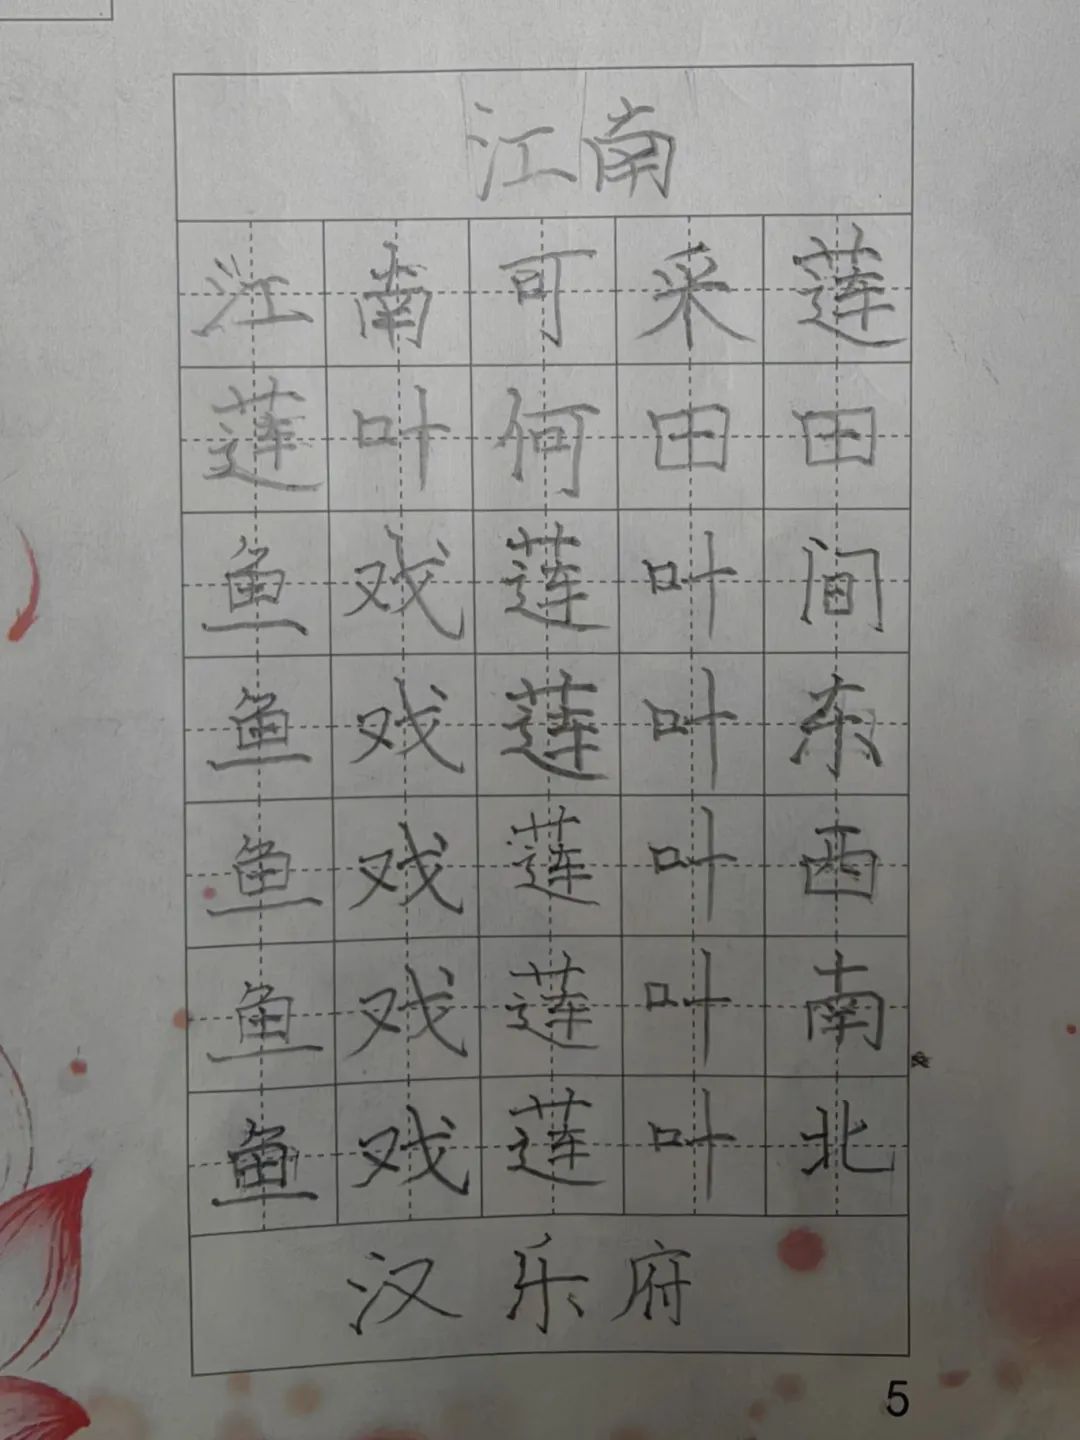 江南
江南可采莲
莲叶何田田
鱼戏莲叶间
鱼戏莲叶东
鱼戏莲叶西
鱼戏莲叶南
鱼戏莲叶北
汉乐府
5